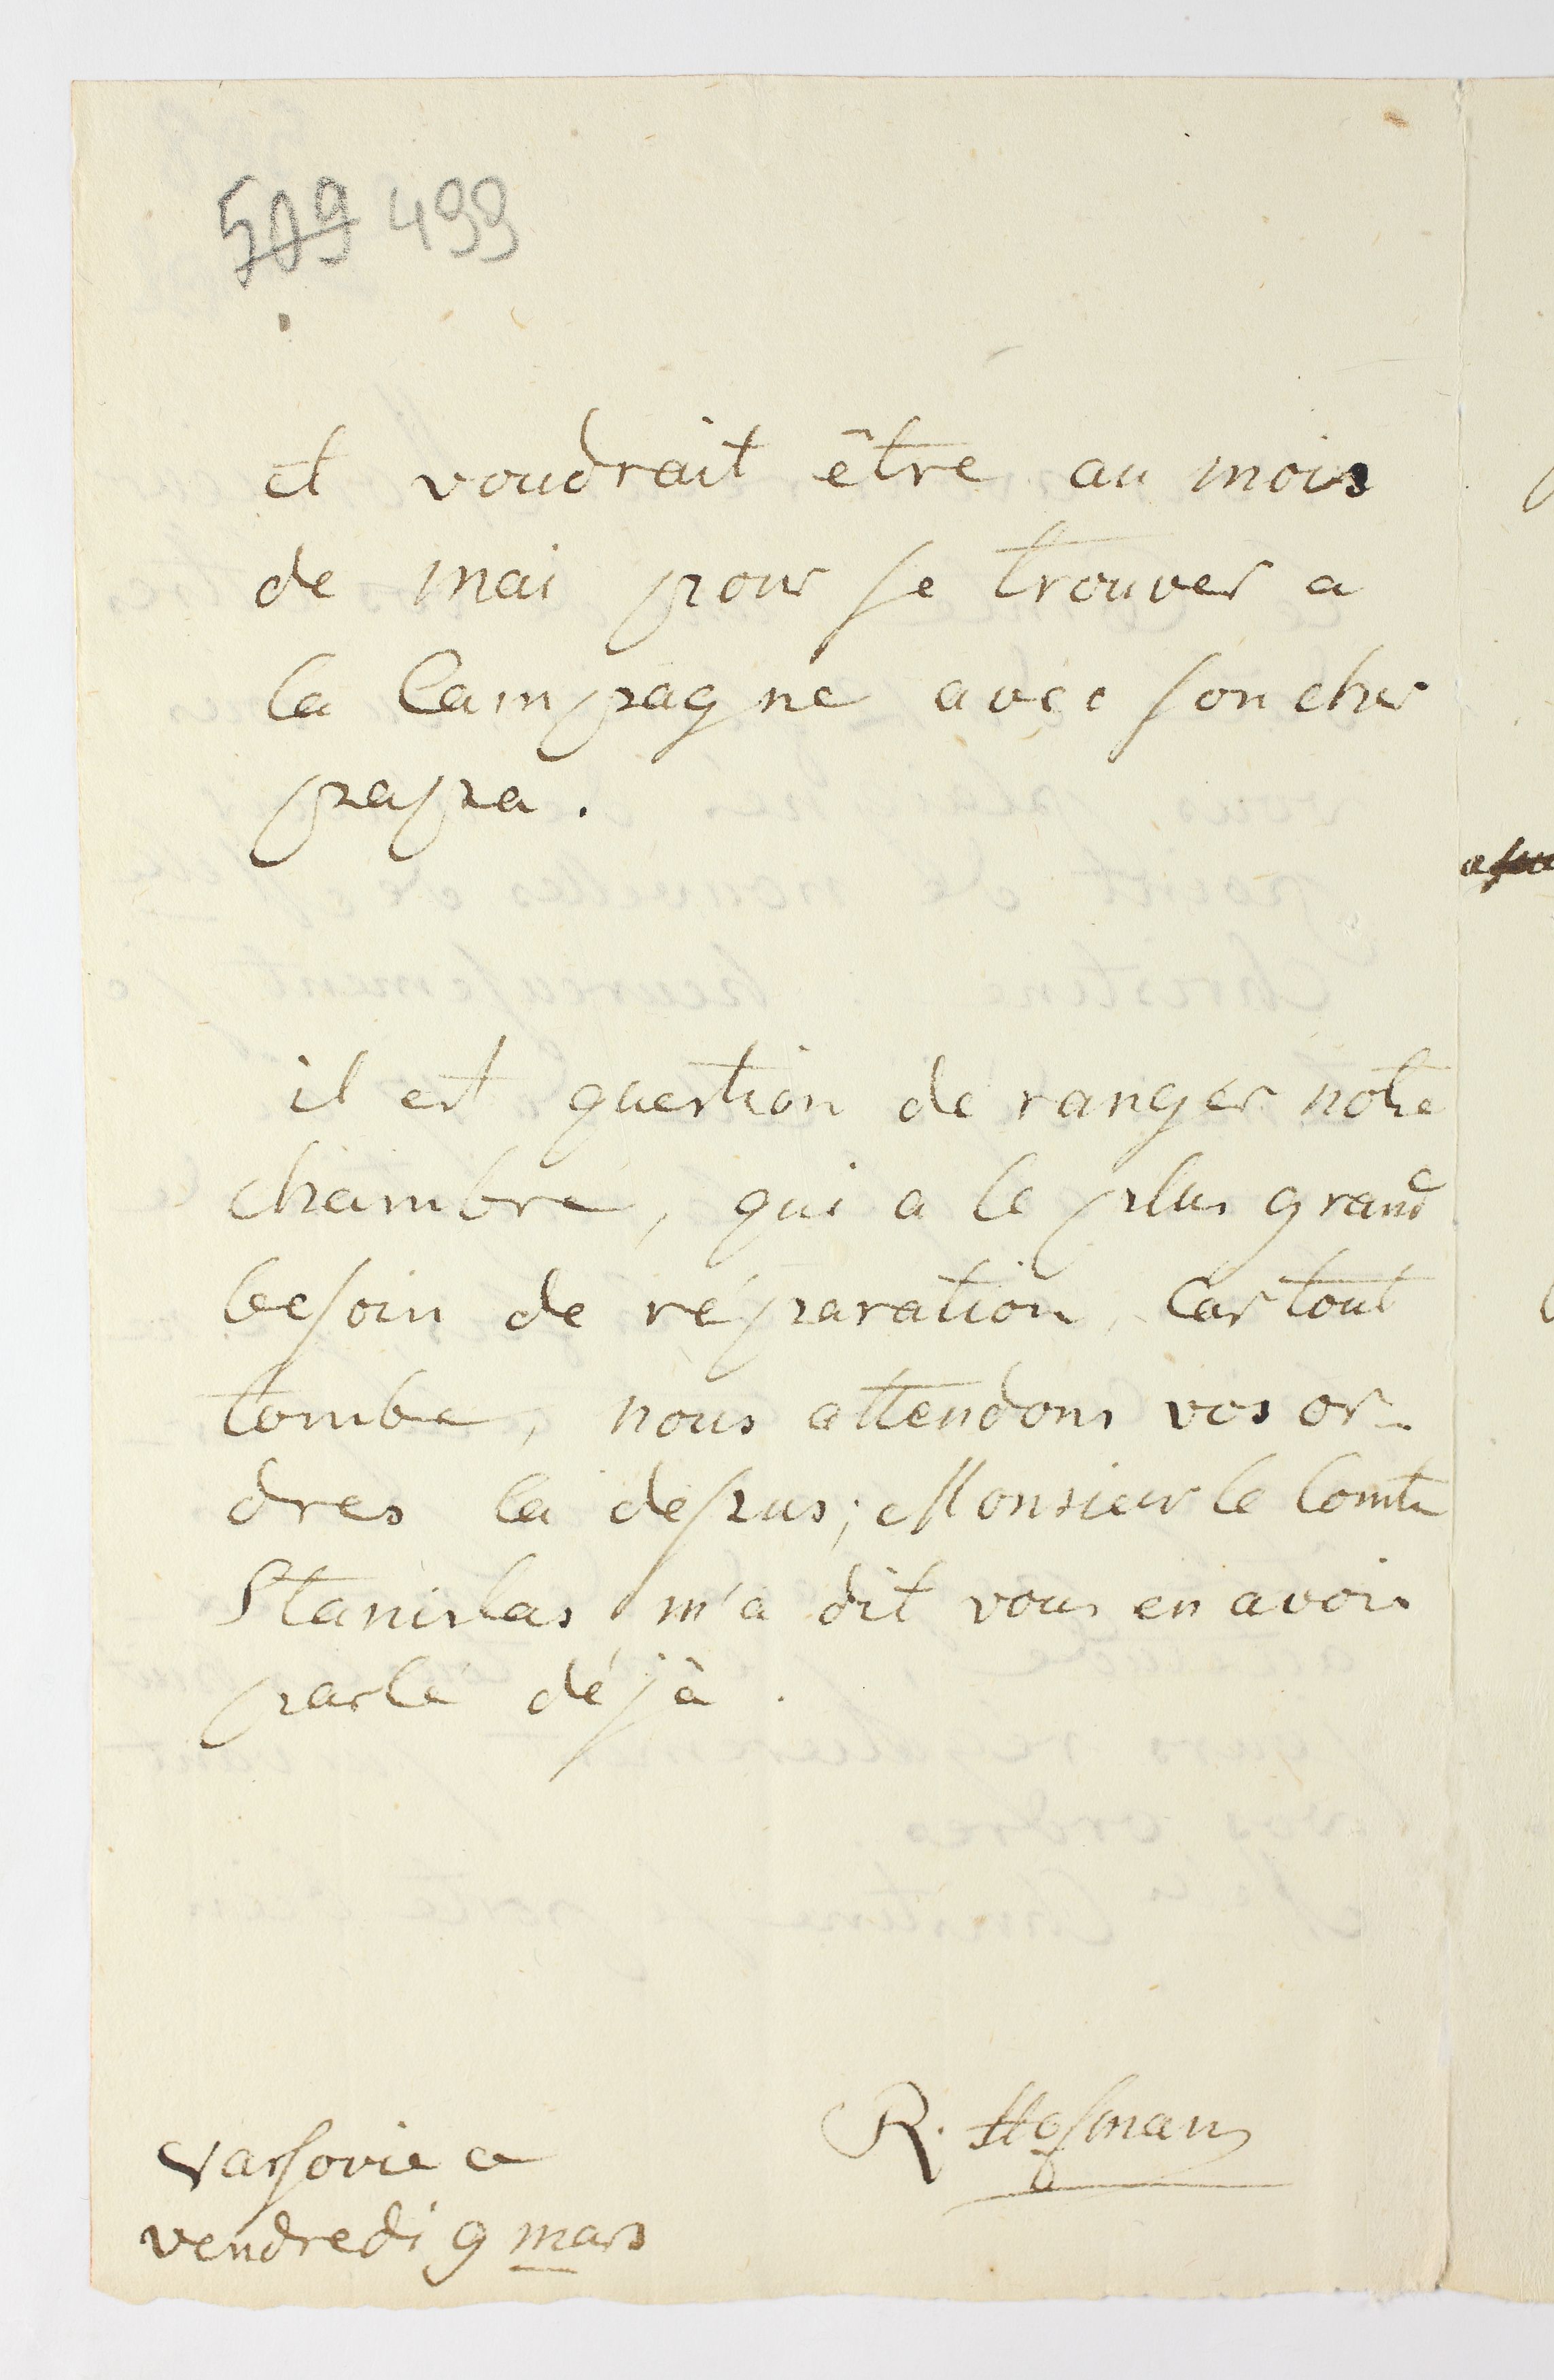 509 499
et voudrait être au mois
de mai pour se trouver a
la Campagne avec son cher
papa.
il est question de ranger notre
chambre, qui a le plus grand
besoin de réparation, Car tout
tombe, nous attendons vos or-
dres la dessus; Monsieur le Comte
Stanislas m'a dit vous en avoir
parlé déjà.
R. Hofman
Varsovie ce
vendredi 9 mars